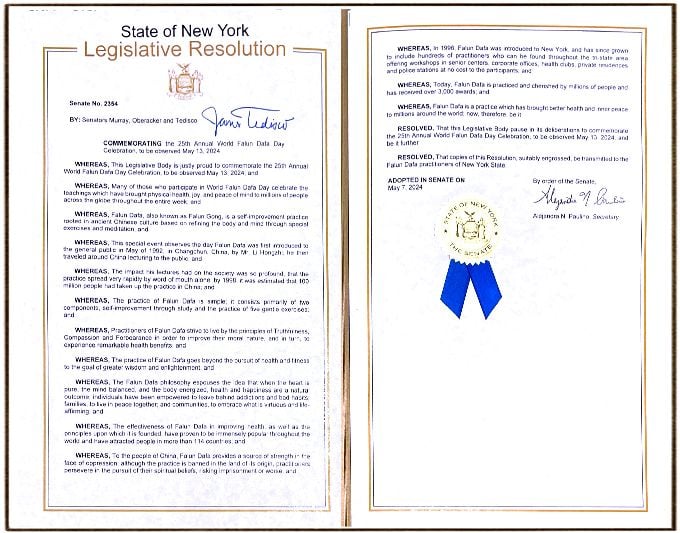 State of New York
Legislative Resolution
Senate No. 2354
BY: Senators Murray, Oberacker and Tedisco
James Tedisco
COMMEMORATING the 25th Annual World Falun Dafa Day
Celebration, to be observed May 13, 2024
WHEREAS, This Legislative Body is justly proud to commemorate the 25th Annual
World Falun Dafa Day Celebration, to be observed May 13, 2024; and
WHEREAS, Many of those who participate in World Falun Dafa Day celebrate the
teachings which have brought physical health, joy, and peace of mind to millions of people
across the globe throughout the entire week; and
WHEREAS, Falun Dafa, also known as Falun Gong, is a self-improvement practice
rooted in ancient Chinese culture based on refining the body and mind through special
exercises and meditation; and
WHEREAS, This special event observes the day Falun Dafa was first introduced to
the general public in May of 1992, in Changchun, China, by Mr. Li Hongzhi; he then
traveled around China lecturing to the public; and
WHEREAS, The impact his lectures had on the society was so profound, that the
practice spread very rapidly by word of mouth alone; by 1998, it was estimated that 100
million people had taken up the practice in China; and
WHEREAS, The practice of Falun Dafa is simple; it consists primarily of two
components, self-improvement through study and the practice of five gentle exercises;
and
WHEREAS, Practitioners of Falun Dafa strive to live by the principles of Truthfulness,
Compassion and Forbearance in order to improve their moral nature, and in turn, to
experience remarkable health benefits; and
WHEREAS, The practice of Falun Dafa goes beyond the pursuit of health and fitness
to the goal of greater wisdom and enlightenment; and
WHEREAS, The Falun Dafa philosophy espouses the idea that when the heart is
pure, the mind balanced, and the body energized, health and happiness are a natural
outcome; individuals have been empowered to leave behind addictions and bad habits;
families, to live in peace together; and communities, to embrace what is virtuous and life-
affirming; and
WHEREAS, The effectiveness of Falun Dafa in improving health, as well as the
principles upon which it is founded, have proven to be immensely popular throughout the
world and have attracted people in more than 114 countries; and
WHEREAS, To the people of China, Falun Dafa provides a source of strength in the
face of oppression; although the practice is banned in the land of its origin, practitioners
persevere in the pursuit of their spiritual beliefs, risking imprisonment or worse; and
WHEREAS, In 1996, Falun Dafa was introduced to New York, and has since grown
to include hundreds of practitioners who can be found throughout the tri-state area
offering workshops in senior centers, corporate offices, health clubs, private residences
and police stations at no cost to the participants; and
WHEREAS, Today, Falun Dafa is practiced and cherished by millions of people and
has received over 3,000 awards; and
WHEREAS, Falun Dafa is a practice which has brought better health and inner peace
to millions around the world; now, therefore, be it
RESOLVED, That this Legislative Body pause in its deliberations to commemorate
the 25th Annual World Falun Dafa Day Celebration, to be observed May 13, 2024; and
be it further
RESOLVED, That copies of this Resolution, suitably engrossed, be transmitted to the
Falun Dafa practitioners of New York State.
ADOPTED IN SENATE ON
May 7, 2024
By order of the Senate,
Alejandra N. Paulino, Secretary
STATE OF NEW YORK
THE SENATE